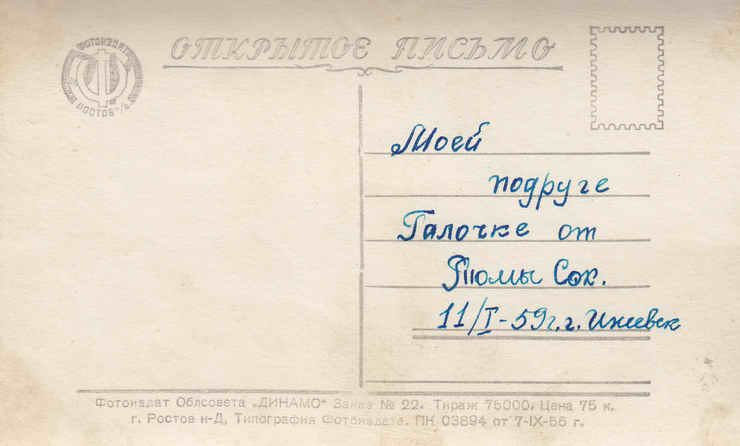 ОТКРЫТОЕ ПИСЬМО
ФОТОИЗДАТ
РОСТОВ н/Д
Моей
подруге
Галочке от
Томы Сок.
11/I-59г. г. Ижевск
Фотоиздат Облсовета „ДИНАМО" Заказ № 22. Тираж 75000. Цена 75 к.
г. Ростов н-Д, Типография Фотоиздата. ПК 03894 от 7-IX-56 г.